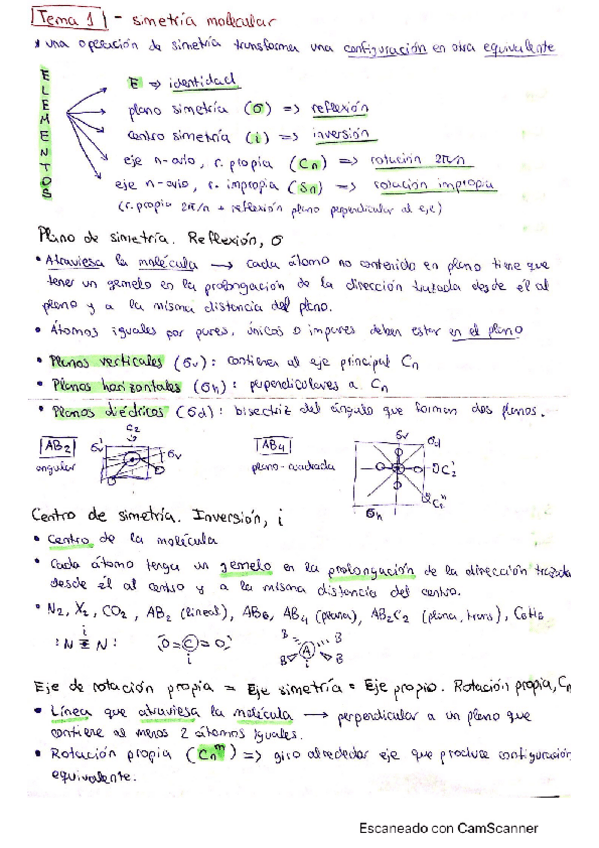 Tema 1 - simetría molecular
* una operación de simetría transforma una configuración en otra equivalente
ELEMENTOS
E => identidad
plano simetría (σ) => reflexión
centro simetría (i) => inversión
eje n-ario, r. propia (Cn) => rotación 2π/n
eje n-ario, r. impropia (Sn) => rotación impropia
(r. propia 2π/n + reflexión plano perpendicular al eje)
Plano de simetría. Reflexión, σ
• Atraviesa la molécula → cada átomo no contenido en plano tiene que
tener un gemelo en la prolongación de la dirección trazada desde él al
plano y a la misma distancia del plano.
• Átomos iguales por pares, únicos o impares deben estar en el plano
• Planos verticales (σv): contienen al eje principal Cn
• Planos horizontales (σh): perpendiculares a Cn
• Planos diédricos (σd): bisectriz del ángulo que forman dos planos.
AB2
angular
C2
σv'
σv
AB4
plano-cuadrada
σv
σd
C2'
C2"
σh
Centro de simetría. Inversión, i
• Centro de la molécula
• Cada átomo tenga un gemelo en la prolongación de la dirección trazada
desde él al centro y a la misma distancia del centro.
• N2, X2, CO2, AB2 (lineal), AB6, AB4 (plana), AB2C2 (plana, trans), C6H6
i
:N≡N:
O=C=O
i
B B
A
B B
i
Eje de rotación propia = Eje simetría = Eje propio. Rotación propia, Cn
• Línea que atraviesa la molécula → perpendicular a un plano que
contiene al menos 2 átomos iguales.
• Rotación propia (Cnᵐ) => giro alrededor eje que produce configuración
equivalente.
Escaneado con CamScanner